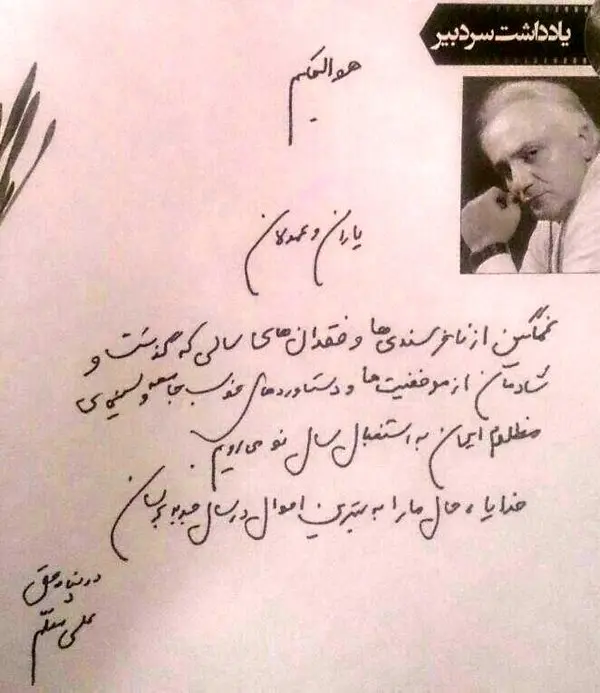 یادداشت سردبیر
هوالحکیم
یاران و همدلان
غمگین از ناخرسندی‌ها و فقدان‌های سالی که گذشت و
شادمان از موفقیت‌ها و دستاوردهای خوب جامعه و سینمای
مظلوم ایران به استقبال سال نو می‌رویم.
خدایا، حال ما را به بهترین احوال در سال جدید برسان
در پناه حق
علی معلم